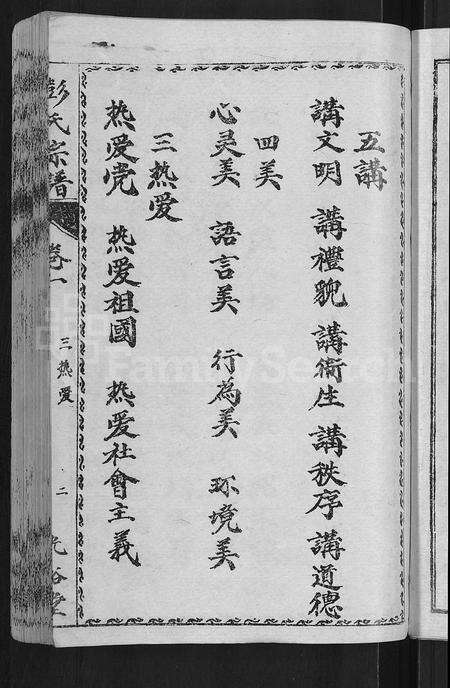 五講
講文明 講禮貌 講衛生 講秩序 講道德
四美
心灵美 語言美 行為美 环境美
三热爱
热爱党 热爱祖國 热爱社會主義
彭氏宗譜
卷一
三热爱
二
光裕堂
FamilySearch